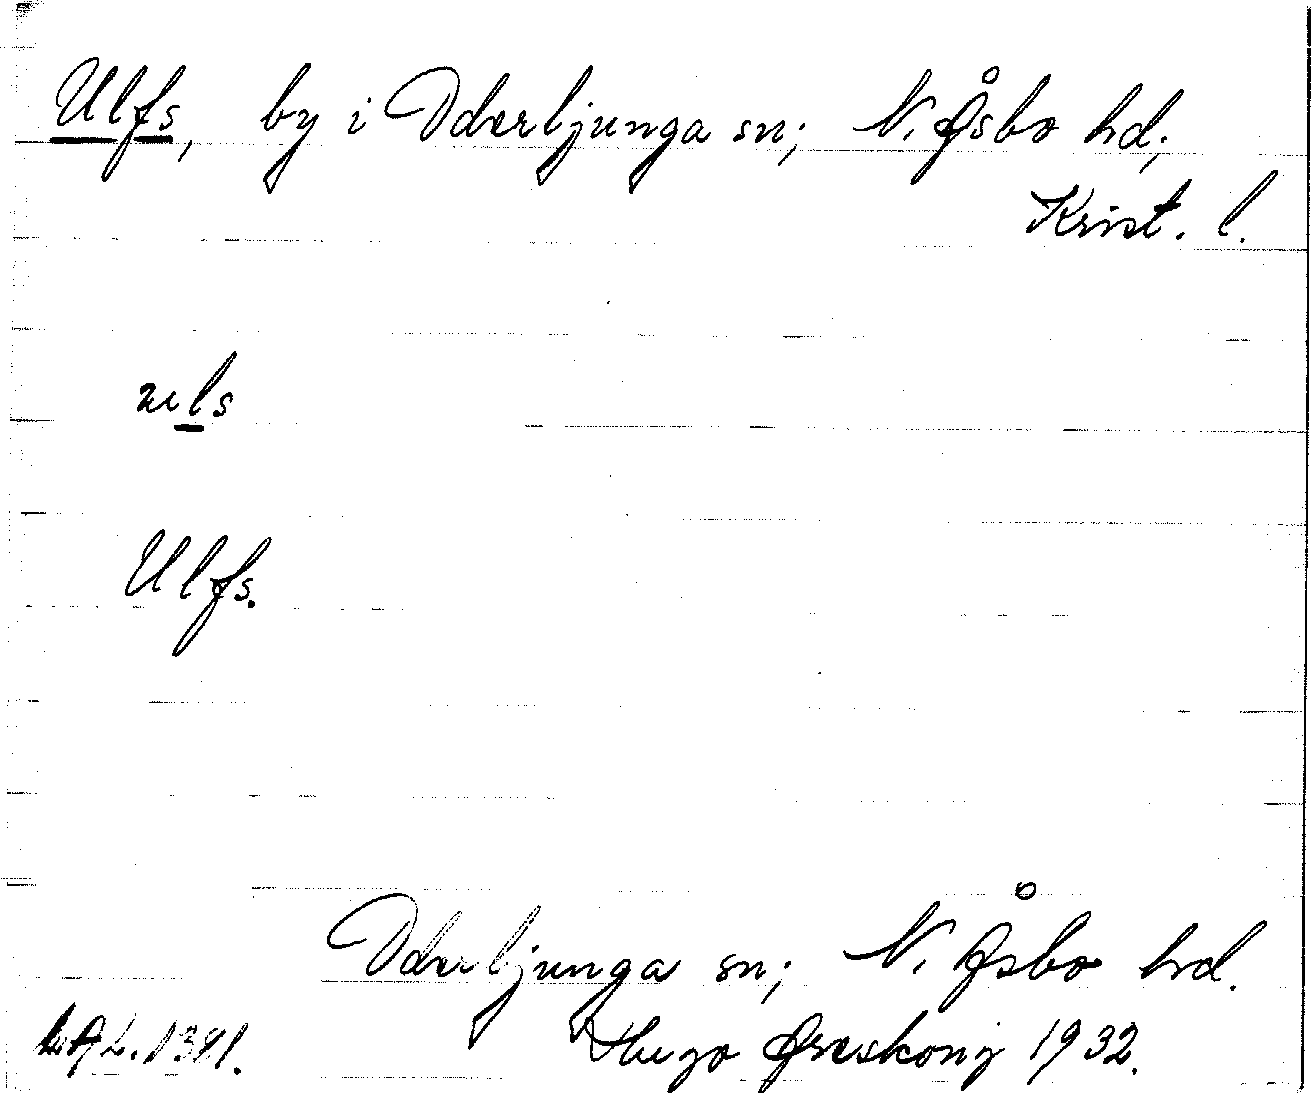 Ulfs, by i Oderljunga sn; N. Åsbo hd;
Krist. l.
uls
Ulfs.
Oderljunga sn; N. Åsbo hrd.
Hugo Areskoug 1932.